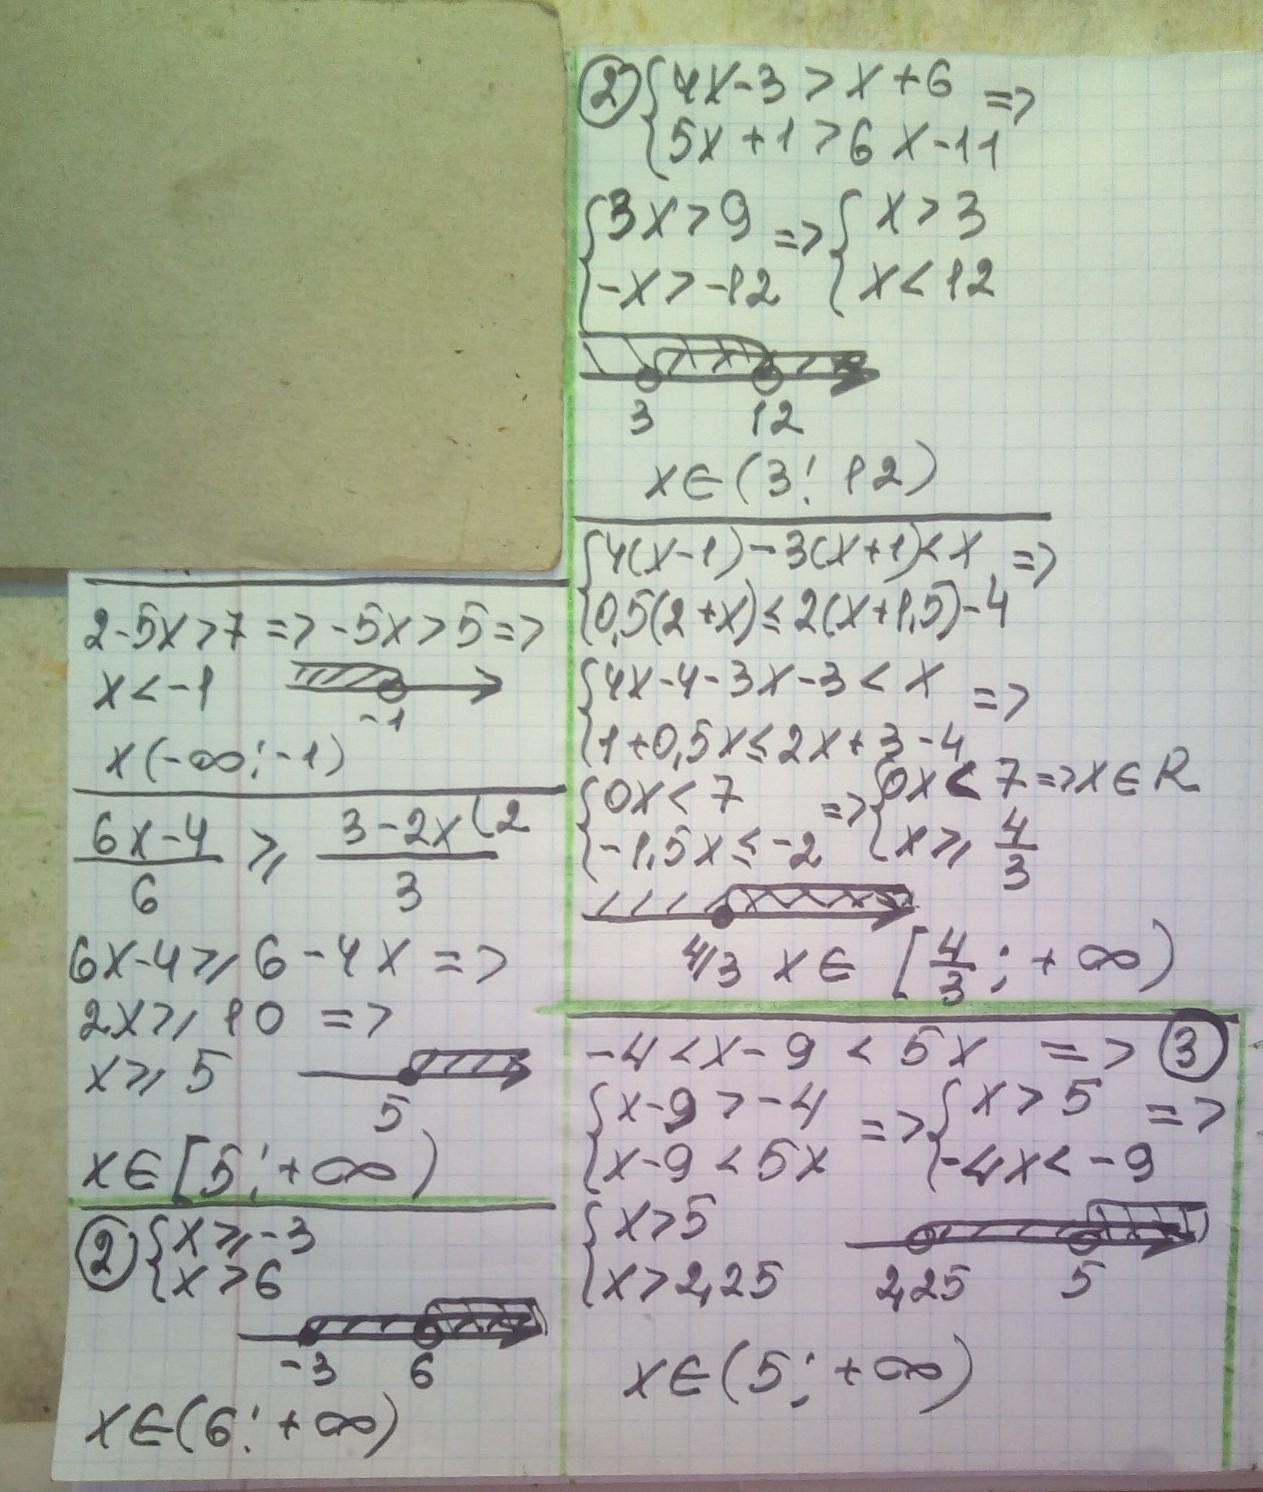 2-5x>7 => -5x>5 =>
x<-1
-1
x(-∞;-1)
6x-4/6 ⩾ 3-2x(2/3
6x-4⩾6-4x =>
2x⩾10 =>
x⩾5
5
x∈[5;+∞)
② {x⩾-3
{x>6
-3 6
x∈(6;+∞)
② {4x-3>x+6 =>
{5x+1>6x-11
{3x>9 => {x>3
{-x>-12 {x<12
3 12
x∈(3;12)
{4(x-1)-3(x+1)<x =>
{0,5(2+x)≤2(x+1,5)-4
{4x-4-3x-3<x =>
{1+0,5x≤2x+3-4
{0x<7 => {0x<7=>x∈R
{-1,5x≤-2 {x⩾4/3
4/3 x∈[4/3;+∞)
-4<x-9<5x => ③
{x-9>-4 => {x>5 =>
{x-9<5x {-4x<-9
{x>5
{x>2,25 2,25 5
x∈(5;+∞)